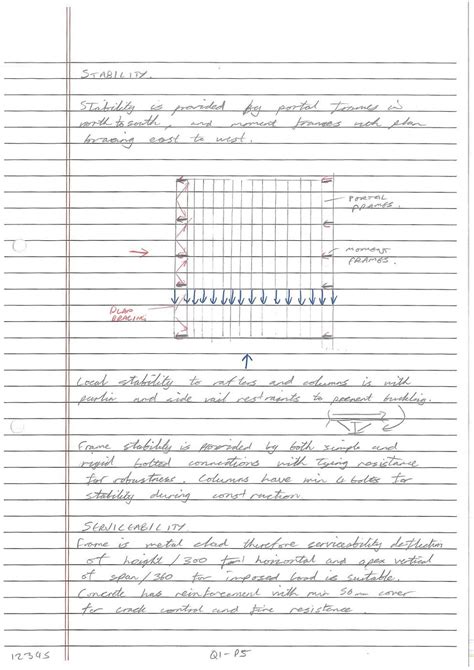 STABILITY.
Stability is provided by portal frames in
north to south, and moment frames with plan
bracing east to west.
PORTAL
FRAMES.
MOMENT
FRAMES.
PLAN
BRACING.
Local stability to rafters and columns is with
purlin and side rail restraints to prevent buckling.
Frame stability is provided by both simple and
rigid bolted connections with tying resistance
for robustness. Columns have min 4 bolts for
stability during construction.
SERVICEABILITY.
Frame is metal clad therefore serviceability deflection
of height/300 for horizontal and apex vertical
of span/360 for imposed load is suitable.
Concrete has reinforcement with min 50mm cover
for crack control and fire resistance.
12345
Q1-P5